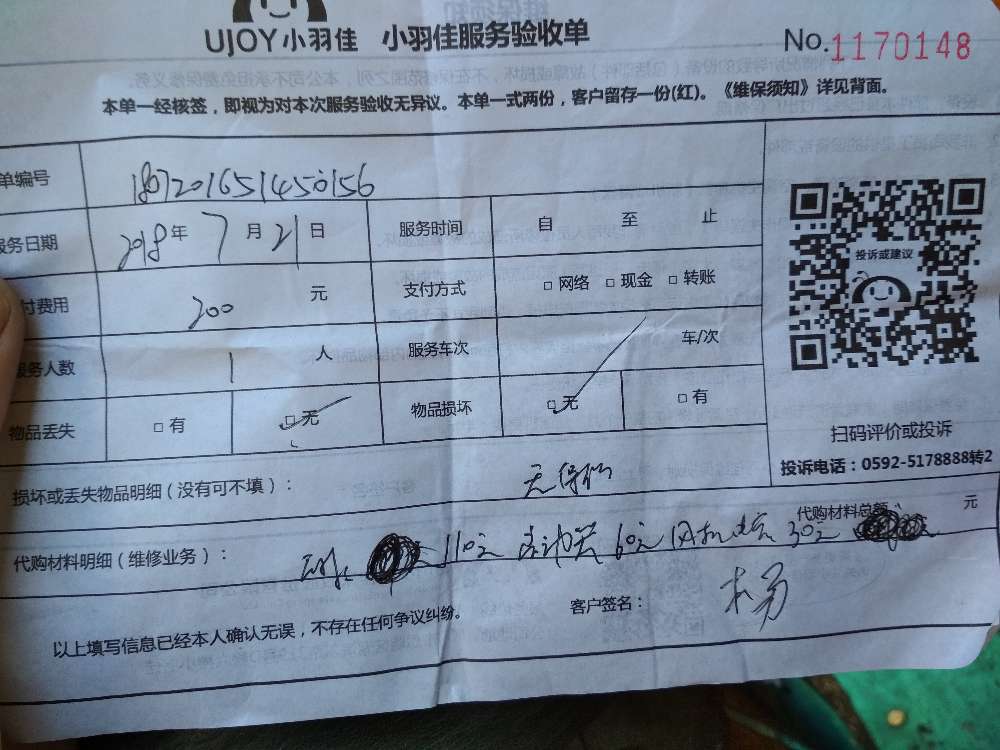 UJOY小羽佳 小羽佳服务验收单 No.1170148
本单一经核签，即视为对本次服务验收无异议。本单一式两份，客户留存一份(红)。《维保须知》详见背面。
单编号 1807201651450156
服务日期 2018年7月21日 服务时间 自 至 止
付费用 200 元 支付方式 □网络 □现金 □转账
服务人数 1 人 服务车次 车/次
物品丢失 □有 □无 物品损坏 □无 □有
投诉或建议
扫码评价或投诉
投诉电话：0592-5178888转2
损坏或丢失物品明细（没有可不填）： 无保修
代购材料总额： 元
代购材料明细（维修业务）： 110元 60元 30元
以上填写信息已经本人确认无误，不存在任何争议纠纷。 客户签名：